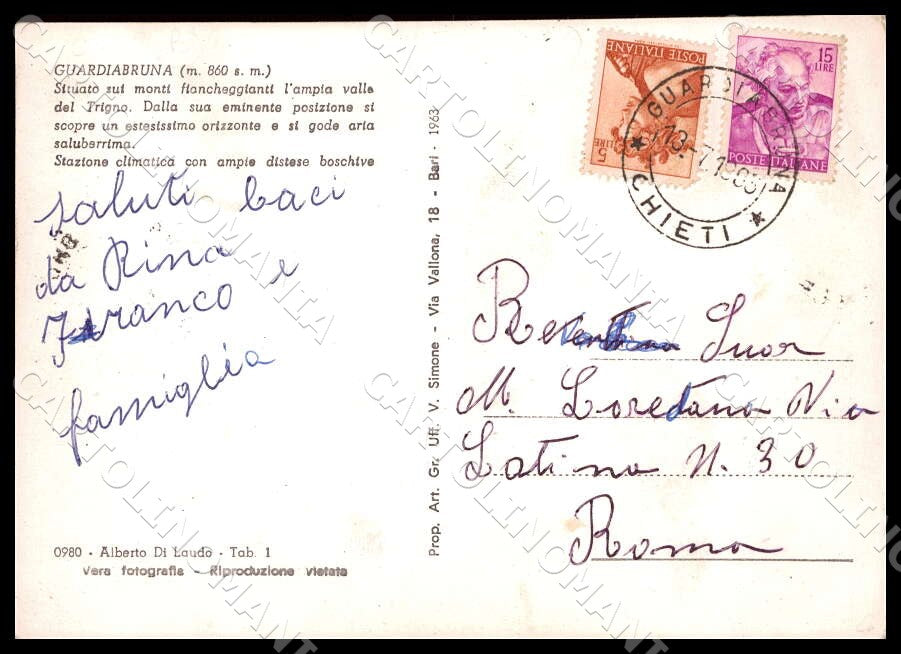 GUARDIABRUNA (m. 860 s. m.)
Situato sui monti fiancheggianti l'ampia valle
del Trigno. Dalla sua eminente posizione si
scopre un estesissimo orizzonte e si gode aria
saluberrima.
Stazione climatica con ampie distese boschive
saluti baci
da Rina e
Franco
famiglia
0980 - Alberto Di Laudo - Tab. 1
Vera fotografia - Riproduzione vietata
Prop. Art. Gr. Uff. V. Simone - Via Vallona, 18 - Bari - 1963
POSTE ITALIANE
5 LIRE
15 LIRE
POSTE ITALIANE
GUARDIABRUNA
13.7.19
CHIETI
Suor
M. Loredana Via
Latina N. 30
Roma
CARTOLINOMANIA